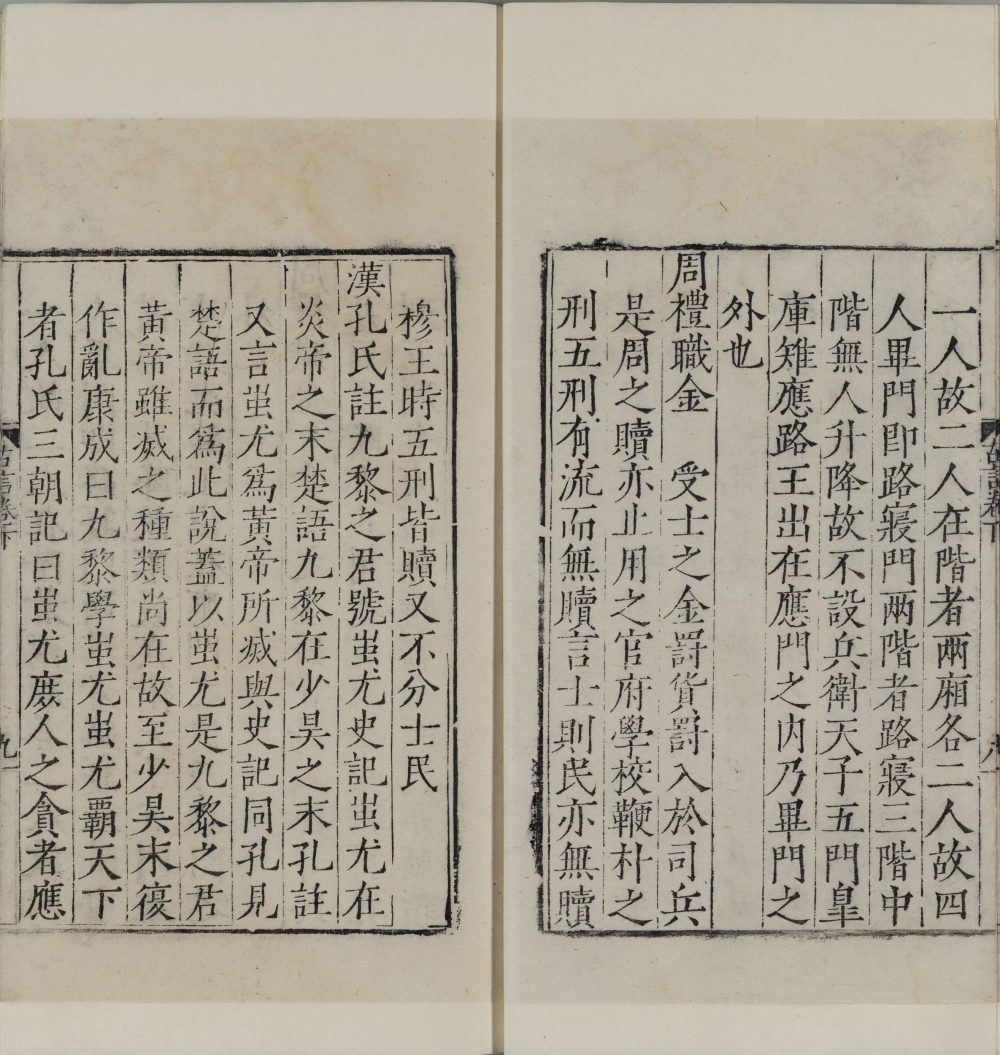 一人故二人在階者兩廂各二人故四
人畢門卽路寢門兩階者路寢三階中
階無人升降故不設兵衛天子五門臯
庫雉應路王出在應門之內乃畢門之
外也
周禮職金　受士之金罰貨罰入於司兵
是周之贖亦止用之官府學校鞭朴之
刑五刑有流而無贖言士則民亦無贖
穆王時五刑皆贖又不分士民
漢孔氏註九黎之君號蚩尤史記蚩尤在
炎帝之末楚語九黎在少昊之末孔註
又言蚩尤爲黃帝所滅與史記同孔見
楚語而爲此說蓋以蚩尤是九黎之君
黃帝雖滅之種類尚在故至少昊末復
作亂康成曰九黎學蚩尤蚩尤霸天下
者孔氏三朝記曰蚩尤庶人之貪者應
卷下
九